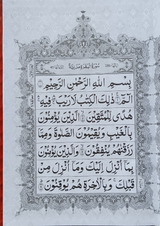 بِسْمِ اللهِ الرَّحْمٰنِ الرَّحِيْمِ
الٓمّٓ ذٰلِكَ الْكِتٰبُ لَا رَيْبَ فِيْهِ
هُدًى لِّلْمُتَّقِيْنَ الَّذِيْنَ يُؤْمِنُوْنَ
بِالْغَيْبِ وَيُقِيْمُوْنَ الصَّلٰوةَ وَمِمَّا
رَزَقْنٰهُمْ يُنْفِقُوْنَ وَالَّذِيْنَ يُؤْمِنُوْنَ
بِمَآ اُنْزِلَ اِلَيْكَ وَمَآ اُنْزِلَ مِنْ
قَبْلِكَ وَبِالْاٰخِرَةِ هُمْ يُوْقِنُوْنَ